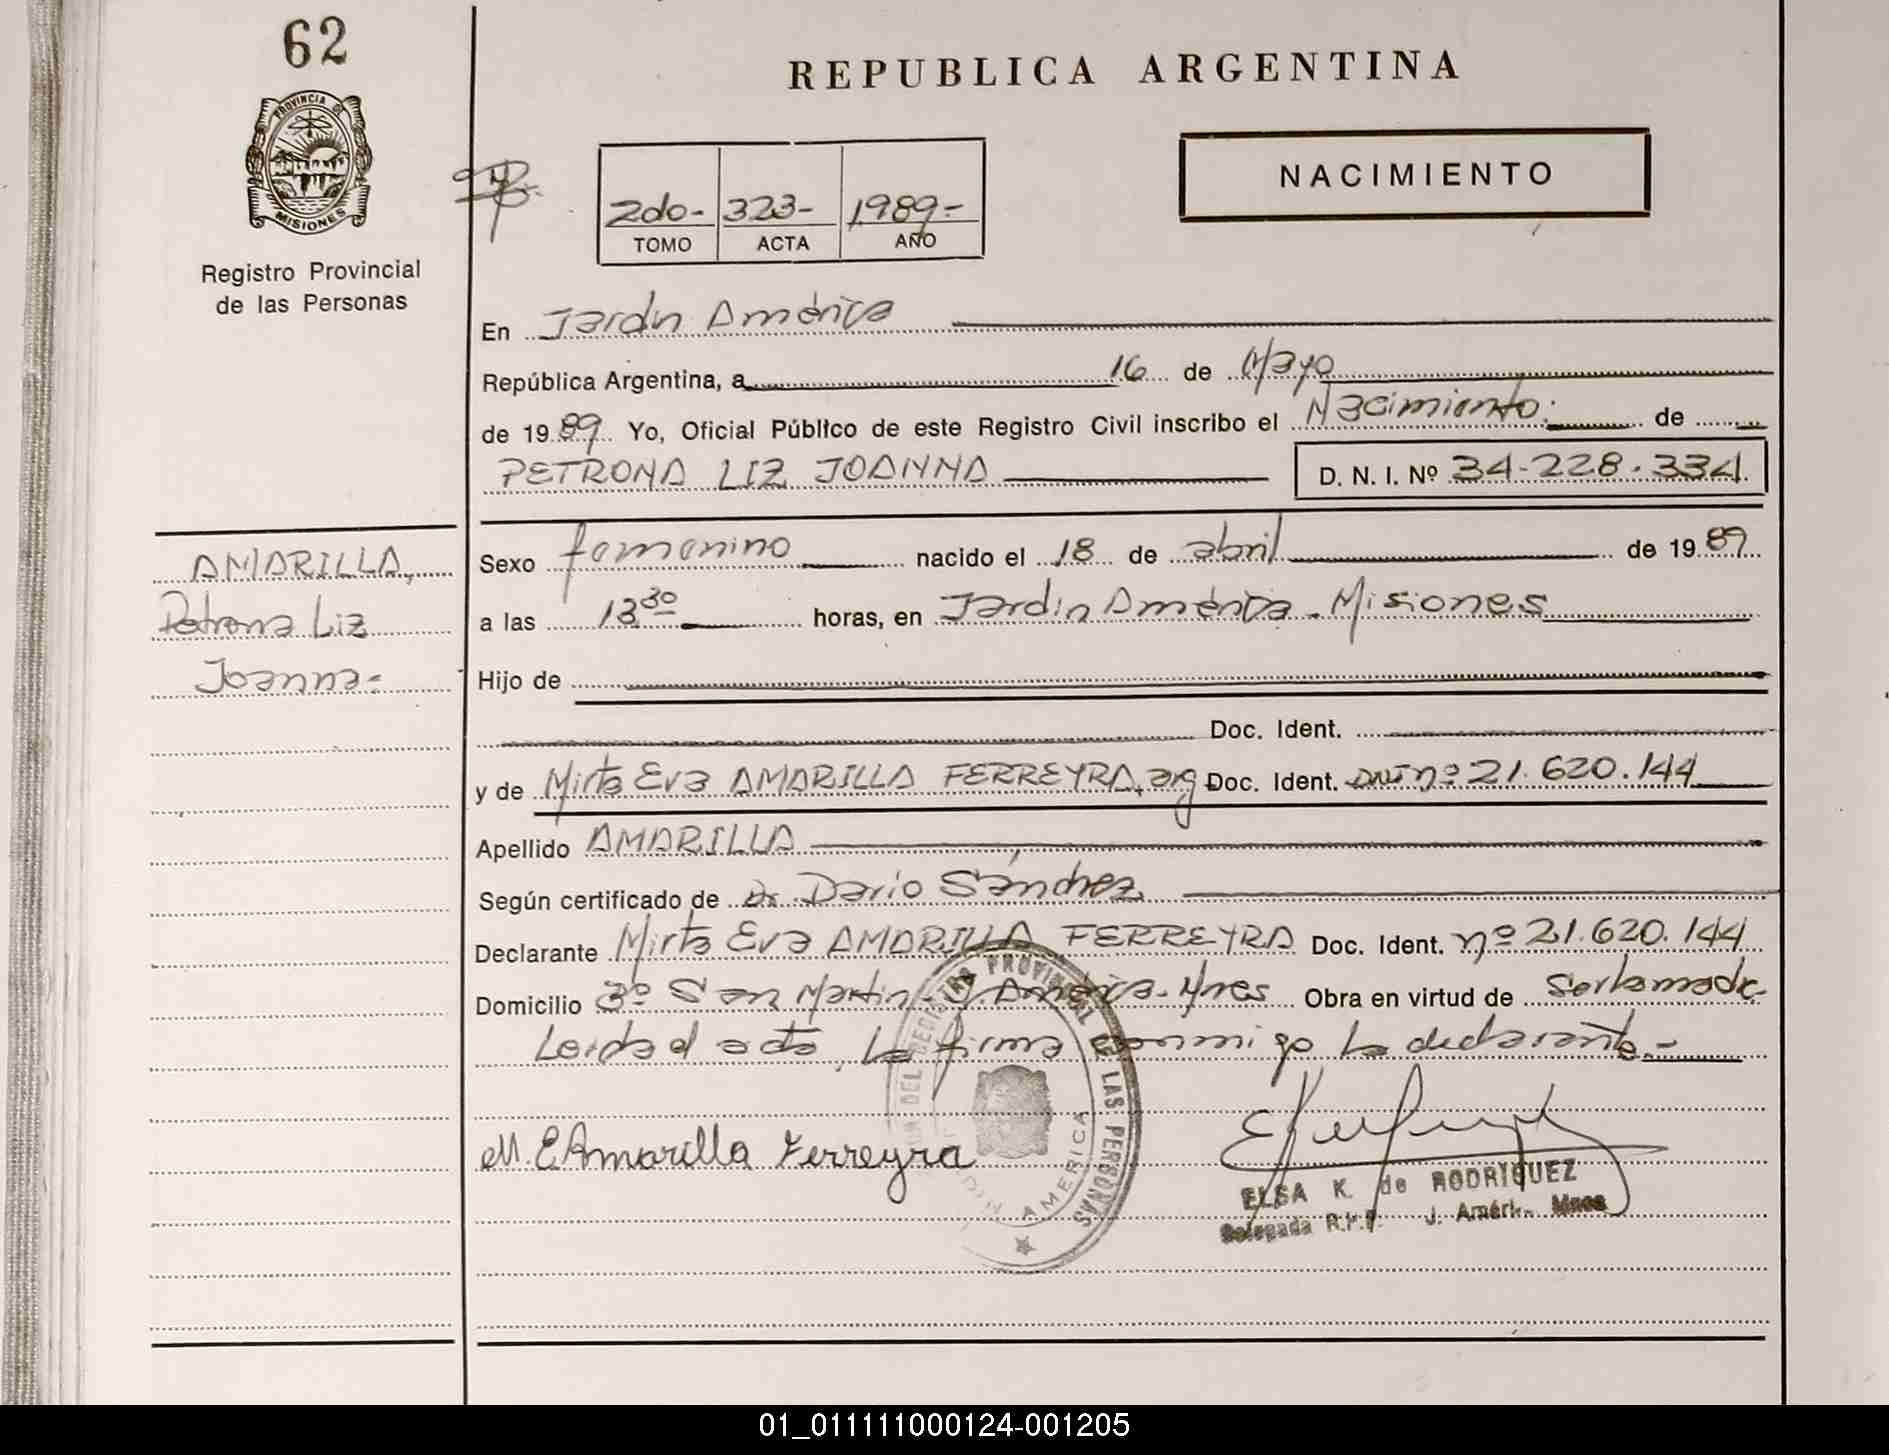 62
REPUBLICA ARGENTINA
PROVINCIA DE
MISIONES
NACIMIENTO
2do- 323- 1989-
TOMO ACTA AÑO
Registro Provincial
de las Personas
En Jardín América
República Argentina, a 16 de Mayo
de 1989 Yo, Oficial Público de este Registro Civil inscribo el Nacimiento. de
PETRONA LIZ JOANNA D. N. I. Nº 34-228.334.
AMARILLA,
Petrona Liz
Joanna-
Sexo femenino nacido el 18 de abril de 1989
a las 13 30 horas, en Jardin América - Misiones
Hijo de
Doc. Ident.
y de Mirta Eva AMARILLA FERREYRA, arg Doc. Ident. DNI nº 21.620.144
Apellido AMARILLA
Según certificado de Dr. Dario Sánchez
Declarante Mirta Eva AMARILLA FERREYRA Doc. Ident. nº 21.620.144
Domicilio 3º San Martin - J. América - Mnes Obra en virtud de
Leida el acta, la firma conmigo la declarante.-
M. E. Amarilla Ferreyra
PROVINCIAL DE LAS PERSONAS
AMERICA
ELSA K. de RODRIGUEZ
Delegada R.P.P. J. Améri. Mnes
01_011111000124-001205